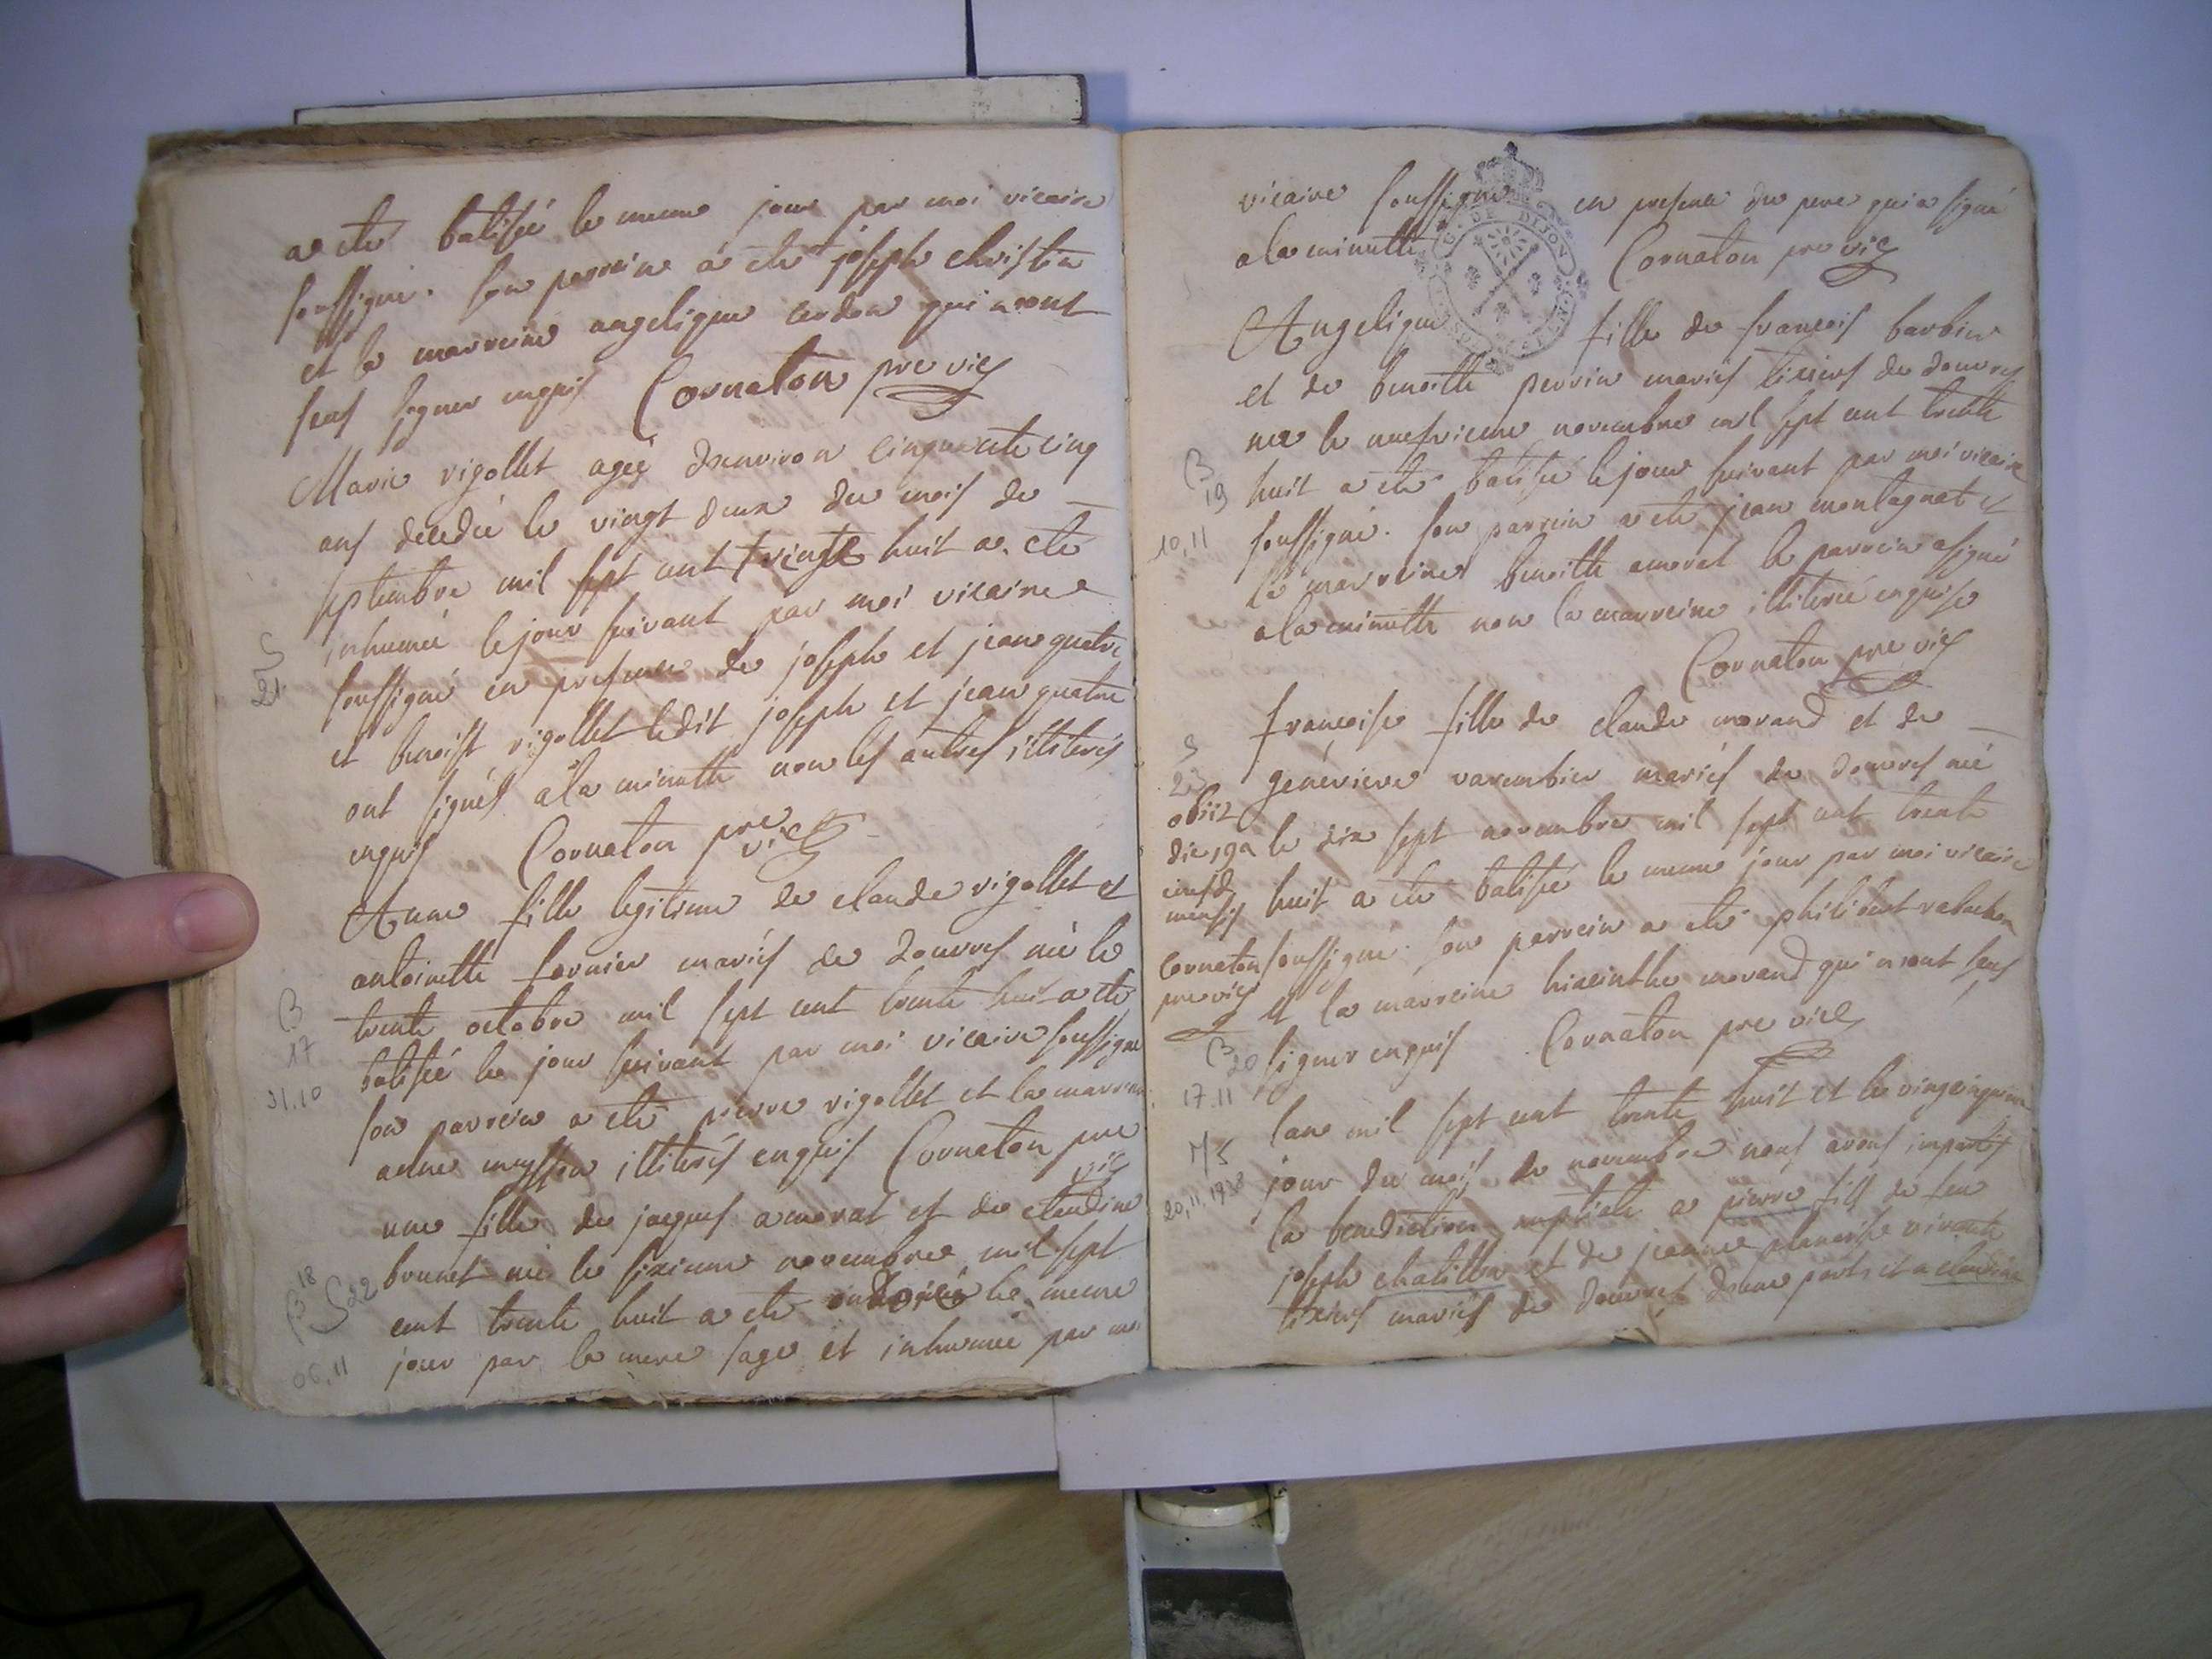 a ete batisée le meme jour par moi vicaire
soussigné. son parrein a ete joseph christin
et la marreine angelique cordon qui n'ont
seus signer enquis Cornaton pre vic
Marie vigollet ageé d'environ cinquante cinq
ans decedeé le vingt deux du mois de
septembre mil sept cent trente huit a ete
inhumeé le jour suivant par moi vicaire
soussigné en presence de joseph et jean quatre
et benoist vigollet ledit joseph et jean quatre
ont signés a la minutte non les autres illiterés
enquis Cornaton pre vic
S
21
Anne fille legitime de claude vigollet et
antoinette fornier mariés de douvres neé le
trente octobre mil sept cent trente huit a ete
batiseé le jour suivant par moi vicaire soussigné
son parrein a ete pierre vigollet et la marreine
anne illiterés enquis Cornaton pre
vic
B
17
31.10
une fille de jacques amorat et de claudine
brunet neé le sixieme novembre mil sept
cent trente huit a ete ondoieé le meme
jour par la mere sage et inhumeé par moi
B 18
S 22
06.11
vicaire soussigné en presence du pere qui a signé
a la minutte Cornaton pre vic
G. DE DIJON
Angelique fille de francois barbier
et de benoitte perrin mariés tixiers de douvres
neé le neufvieme novembre mil sept cent trente
huit a ete batiseé le jour suivant par moi vicaire
soussigné. son parrein a ete jean montagnat et
la marreine benoitte amorat le parrein a signé
a la minutte non la marreine illitereé enquise
Cornaton pre vic
B
19
10.11
francoise fille de claude morand et de
genevieve varembier mariés de douvres neé
le dix sept novembre mil sept cent trente
huit a ete batisée le meme jour par moi vicaire
soussigné. son parrein a ete philibert
et la marreine hiacinthe morand qui n'ont seus
signer enquis Cornaton pre vic
S
23
obiit
die 19a
eiusd
mensis
Cornaton
pre vic
B 20
17.11
lan mil sept cent trente huit et le
jour du mois de novembre nous avons imparti
la benediction nuptiale a pierre fils de feu
joseph chatillon et de jeanne vivante
tixiers mariés de douvres d'une part, et a claudine
M 5
20.11.1938